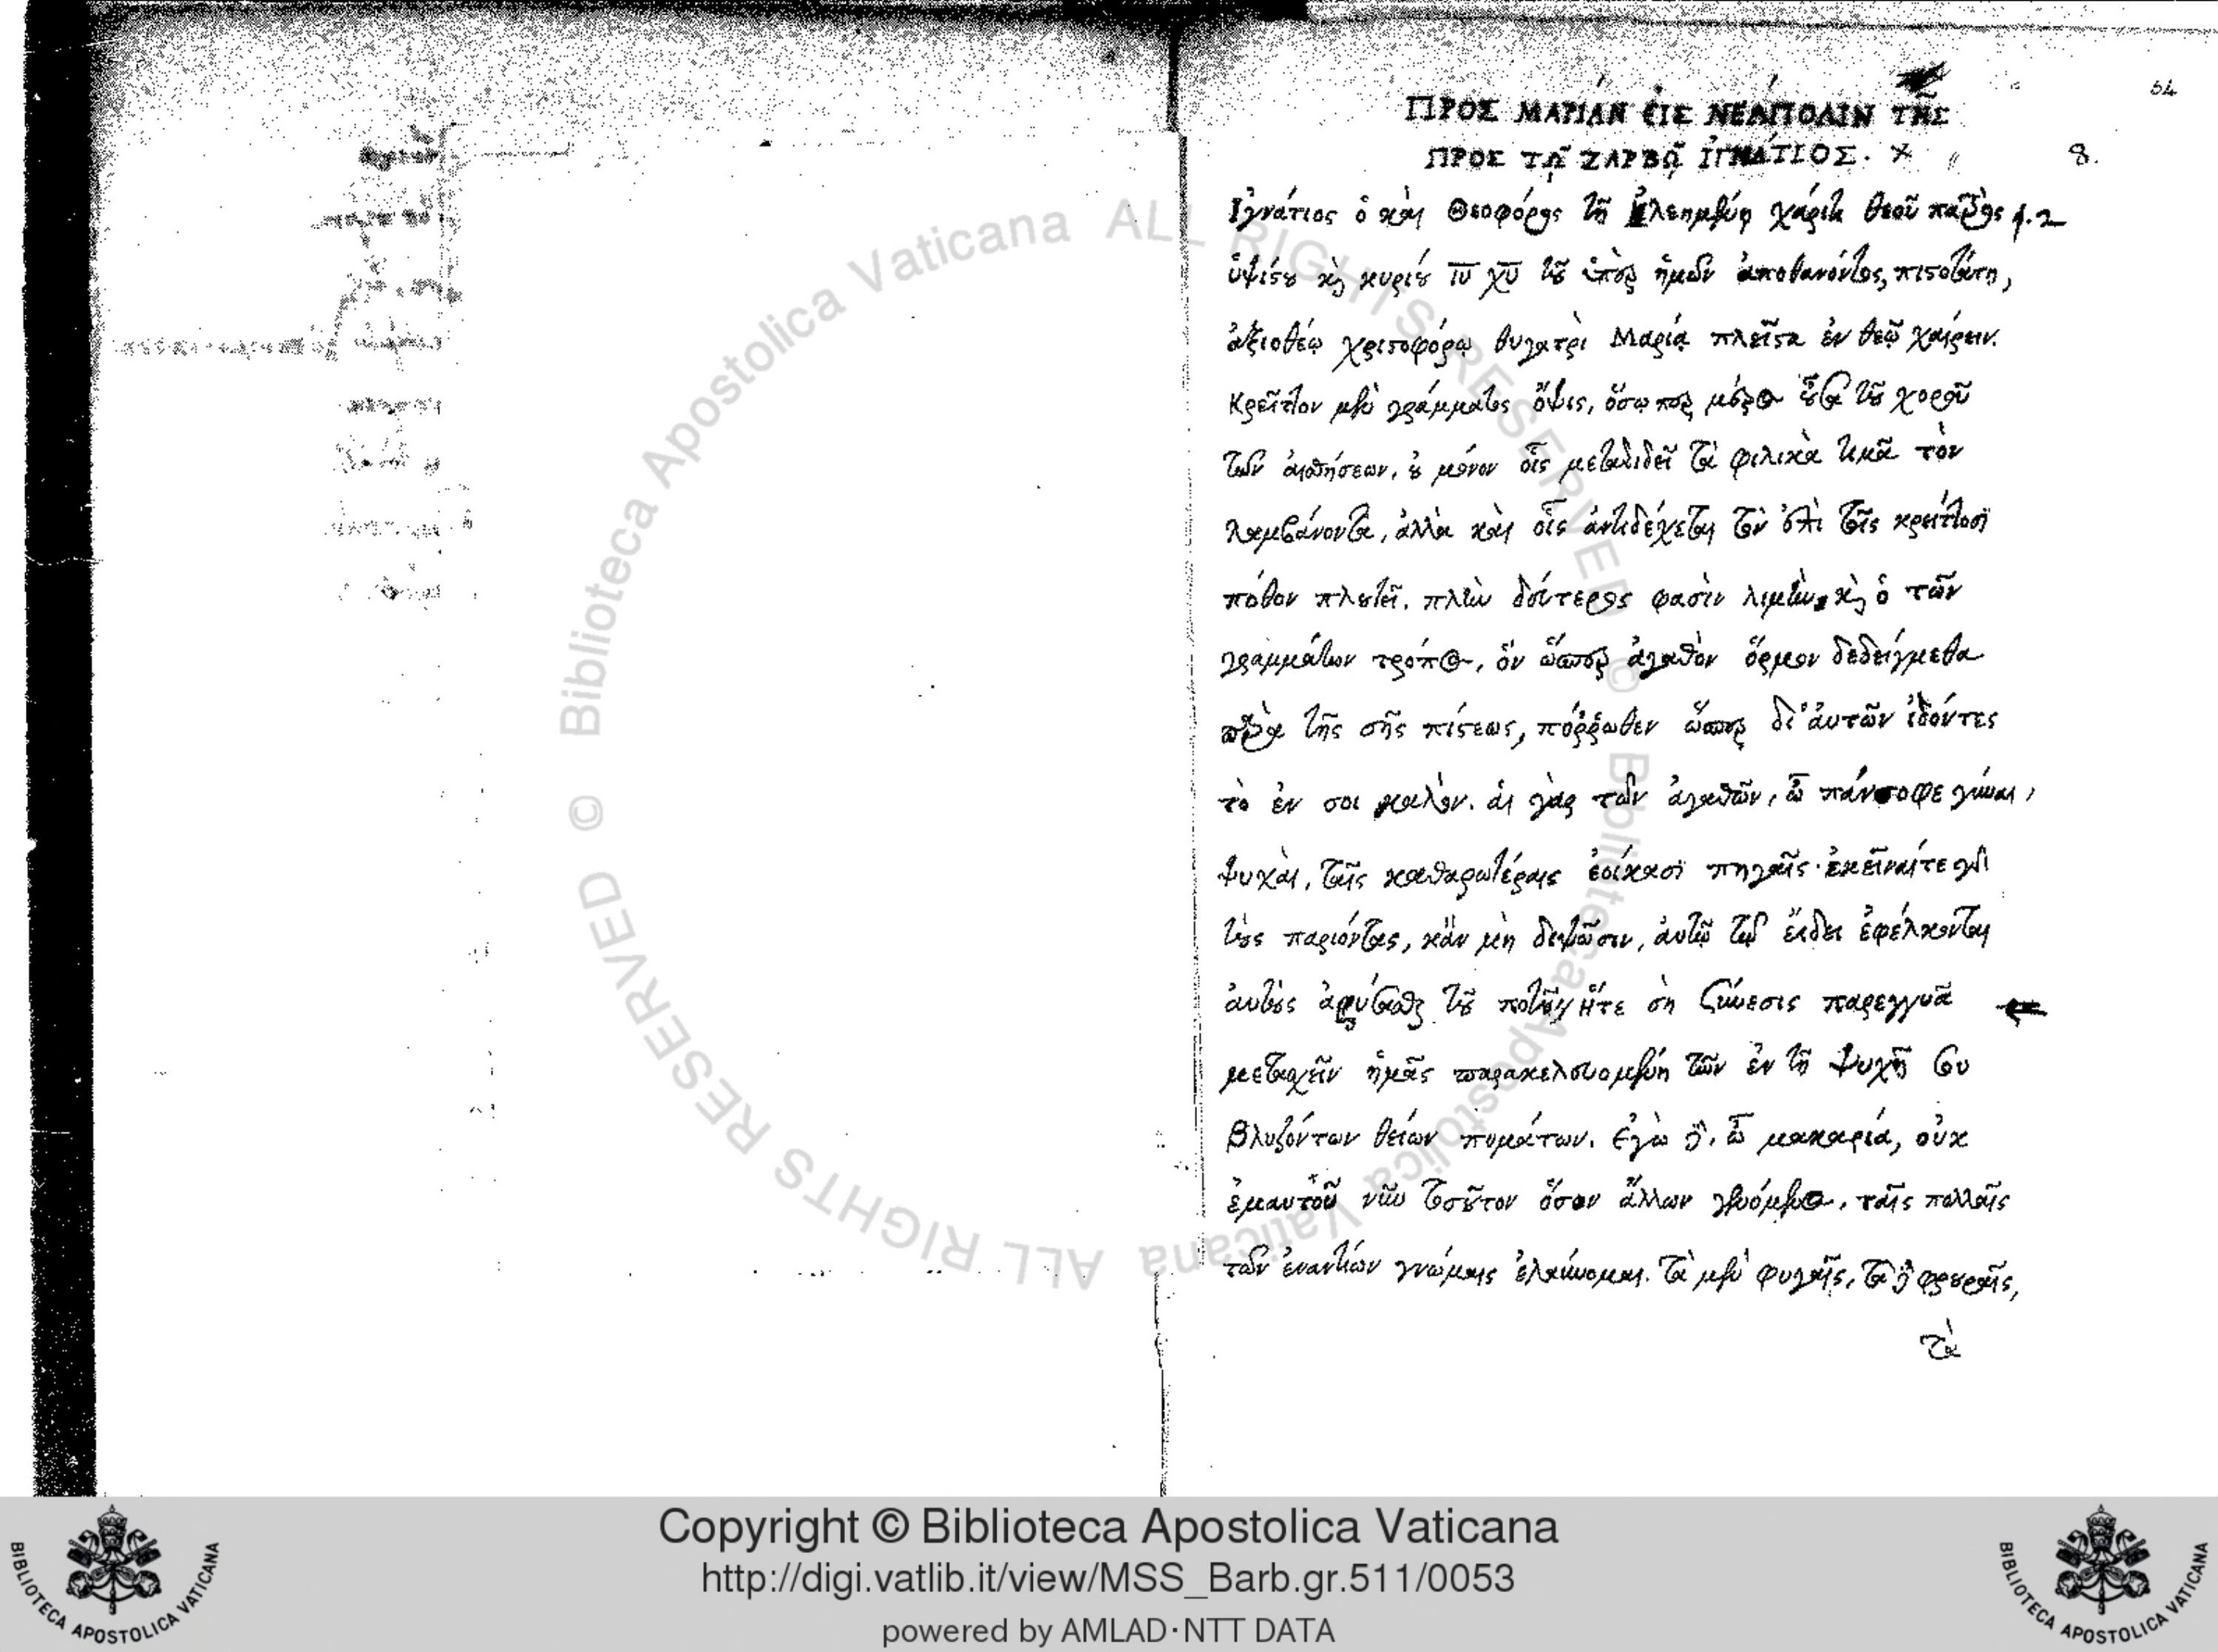 54
ΠΡΟΣ ΜΑΡΊΑΝ ΕΙΣ ΝΕΆΠΟΛΙΝ ΤΗ͂Σ
ΠΡΟΣ Τῼ͂ ΖΑΡΒῼ͂ ἸΓΝΆΤΙΟΣ. 8.
Ἰγνάτιος ὁ καὶ Θεοφόρος τῇ ἐλεημένῃ χάριτι θεοῦ πατρὸς
ὑψίστου καὶ κυρίου ιυ χυ τοῦ ὑπὲρ ἡμῶν ἀποθανόντος, πιστοτάτη,
ἀξιοθέῳ χριστοφόρῳ θυγατρὶ Μαρίᾳ πλεῖστα ἐν θεῷ χαίρειν.
Κρεῖττον μὲν γράμματος ὄψις, ὅσῳ περ μέρος οὖσα τοῦ χοροῦ
τῶν αἰσθήσεων, οὐ μόνον οἷς μεταδιδεῖ τὰ φιλικὰ τιμᾶ τὸν
λαμβάνοντα, ἀλλὰ καὶ οἷς ἀντιδέχεται τὸν ἐπὶ τοῖς κρείττοσι
πόθον πλουτεῖ. πλὴν δεύτερος φασὶν λιμὴν, καὶ ὁ τῶν
γραμμάτων τρόπος, ὃν ὥσπερ ἀγαθὸν ὅρμον δεδείγμεθα
παρὰ τῆς σῆς πίστεως, πόῤῥωθεν ὥσπερ δι' αὐτῶν ἰδόντες
τὸ ἐν σοι καλὸν. αἱ γὰρ τῶν ἀγαθῶν, ὦ πάνσοφε γύναι,
ψυχαὶ, ταῖς καθαρωτέραις ἐοίκασι πηγαῖς· ἐκεῖναί τε γὰρ
τοὺς παριόντας, κἂν μὴ διψῶσιν, αὐτῷ τῷ εἴδει ἐφέλκονται
αὐτοὺς ἀρύσασθαι τοῦ ποτοῦ, ἥτε σὴ σύνεσις παρεγγυᾶ
μετασχεῖν ἡμᾶς παρακελευομένη τῶν ἐν τῇ ψυχῇ σου
βλυζόντων θείων πομάτων. Ἐγὼ δὲ, ὦ μακαρία, οὐκ
ἐμαυτοῦ νῦν τοσοῦτον ὅσον ἄλλων γενόμενος, ταῖς πολλαῖς
τῶν ἐναντίων γνώμαις ἐλαύνομαι. τὰ μὲν φυγαῖς, τὰ δὲ φρουραῖς,
τὰ
© Biblioteca Apostolica Vaticana ALL RIGHTS RESERVED © Biblioteca Apostolica Vaticana ALL RIGHTS RESERVED
Copyright © Biblioteca Apostolica Vaticana
http://digi.vatlib.it/view/MSS_Barb.gr.511/0053
powered by AMLAD·NTT DATA
BIBLIOTECA APOSTOLICA VATICANA
BIBLIOTECA APOSTOLICA VATICANA